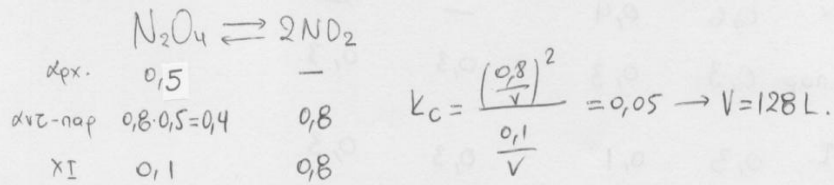 N₂O₄ ⇌ 2NO₂
αρχ. 0,5 —
αντ-παρ 0,8·0,5=0,4 0,8
ΧΙ 0,1 0,8
Kc = (0,8/V)² / (0,1/V) = 0,05 → V=128 L.